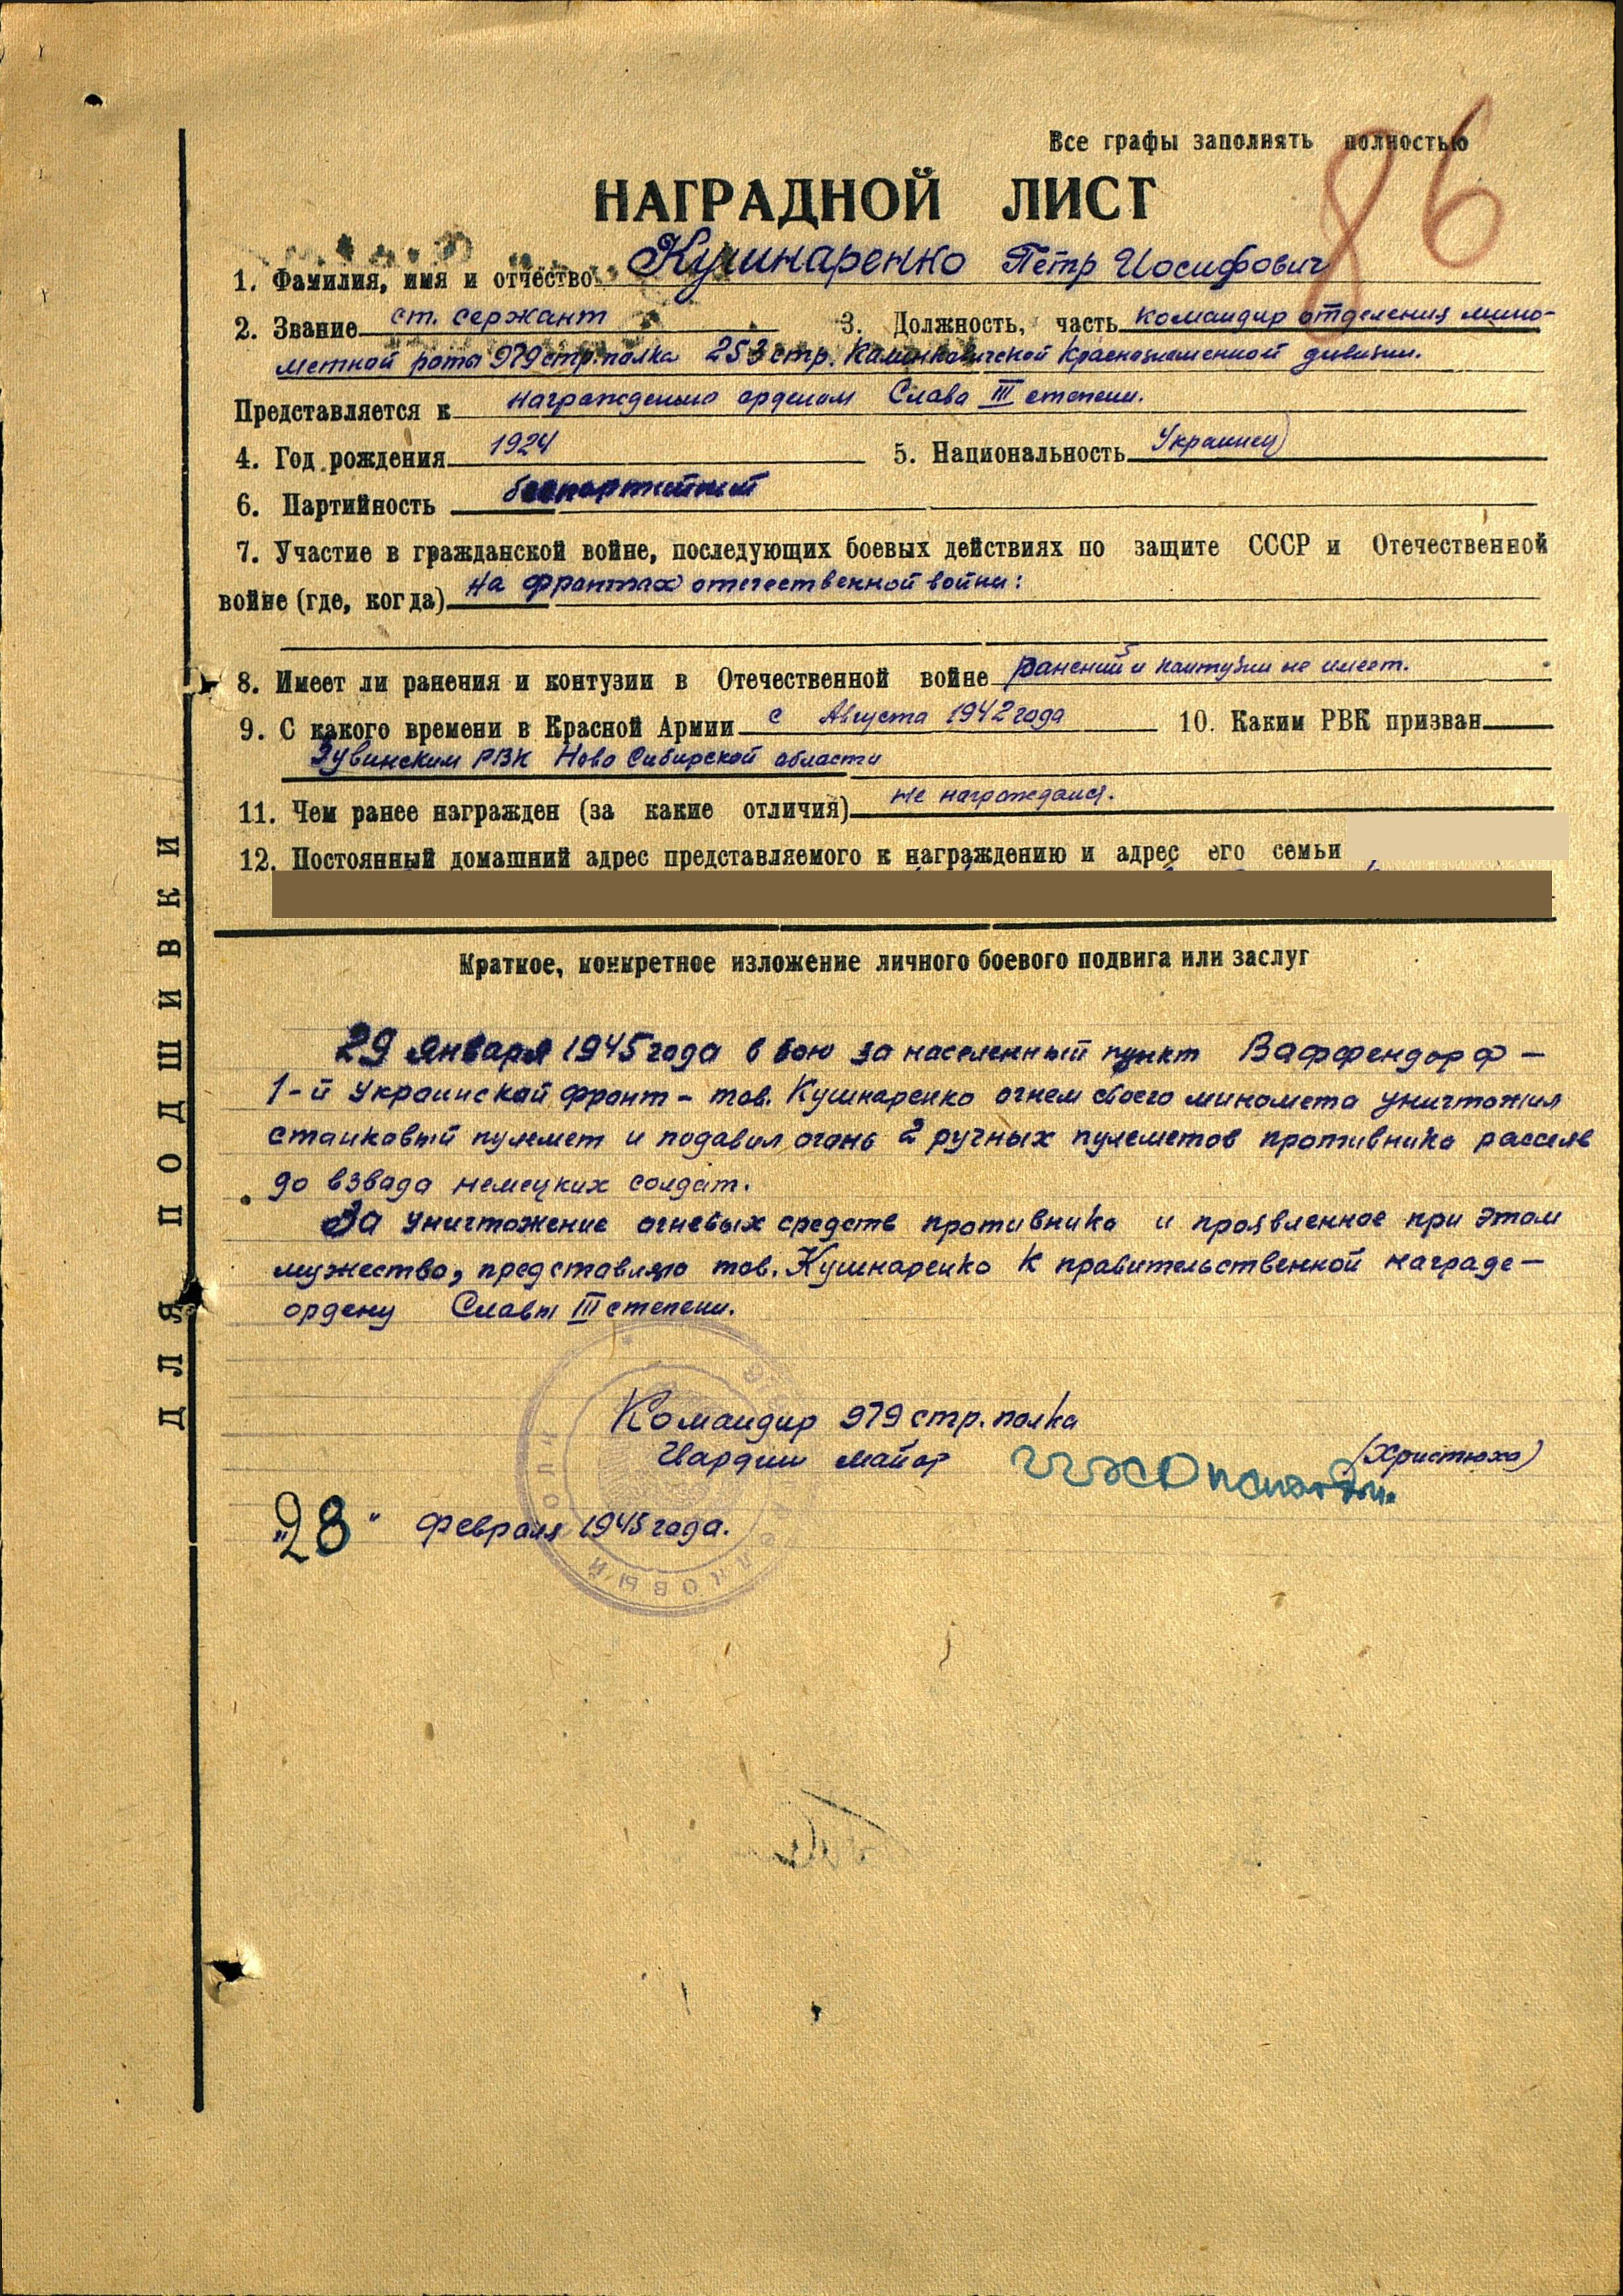 Все графы заполнять полностью
86
НАГРАДНОЙ ЛИСТ
1. Фамилия, имя и отчество Кушнаренко Пётр Иосифович
2. Звание ст. сержант 3. Должность, часть командир отделения мино-
метной роты 979 стр. полка 253 стр. Калинковичской Краснознаменной дивизии.
Представляется к награждению орденом Слава III степени.
4. Год рождения 1924 5. Национальность Украинец
6. Партийность беспартийный
7. Участие в гражданской войне, последующих боевых действиях по защите СССР и Отечественной
войне (где, когда) на фронтах отечественной войны:
8. Имеет ли ранения и контузии в Отечественной войне ранений и контузии не имеет.
9. С какого времени в Красной Армии с Августа 1942 года 10. Каким РВК призван
РВК Ново Сибирской области
11. Чем ранее награжден (за какие отличия) не награждался.
12. Постоянный домашний адрес представляемого к награждению и адрес его семьи
Краткое, конкретное изложение личного боевого подвига или заслуг
29 января 1945 года в бою за населенный пункт Ваффендорф –
1-й Украинский фронт – тов. Кушнаренко огнем своего миномета уничтожил
станковый пулемет и подавил огонь 2 ручных пулеметов противника рассеяв
до взвада немецких солдат.
За уничтожение огневых средств противника и проявленное при этом
мужество, представляю тов. Кушнаренко к правительственной награде –
ордену Славы III степени.
Командир 979 стр. полка
Гвардии майор (Христюха)
„28" февраля 1945 года.
ДЛЯ ПОДШИВКИ